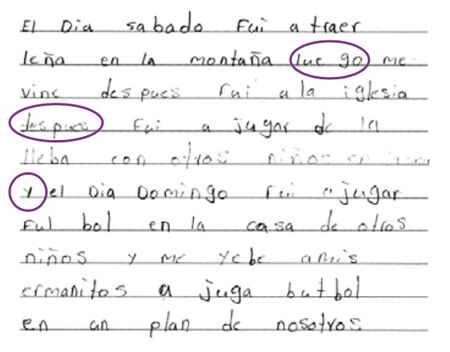 El Dia sabado Fui a traer
leña en la montaña lue go me
vine despues Fui a la iglesia
despues Fui a jugar de la
lleba con otros niños en
y el Dia Domingo Fui a jugar
Fut bol en la casa de otros
niños y me yebe amis
ermanitos a juga butbol
en un plan de nosotros